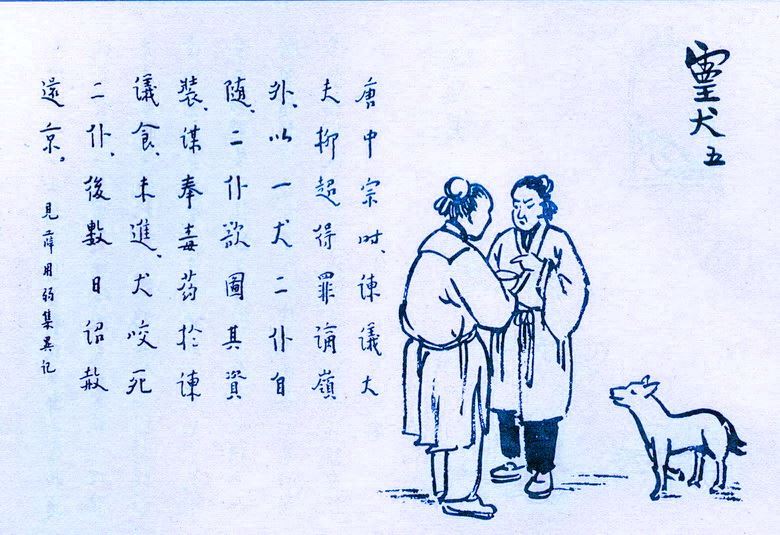 靈犬五
唐中宗时、谏议大
夫柳超得罪谪嶺
外、以一犬二仆自
随、二仆欲圖其資
裝、谋奉毒药於谏
议食、未進、犬咬死
二仆、後數日诏赦
還京。
見薛用弱集異记